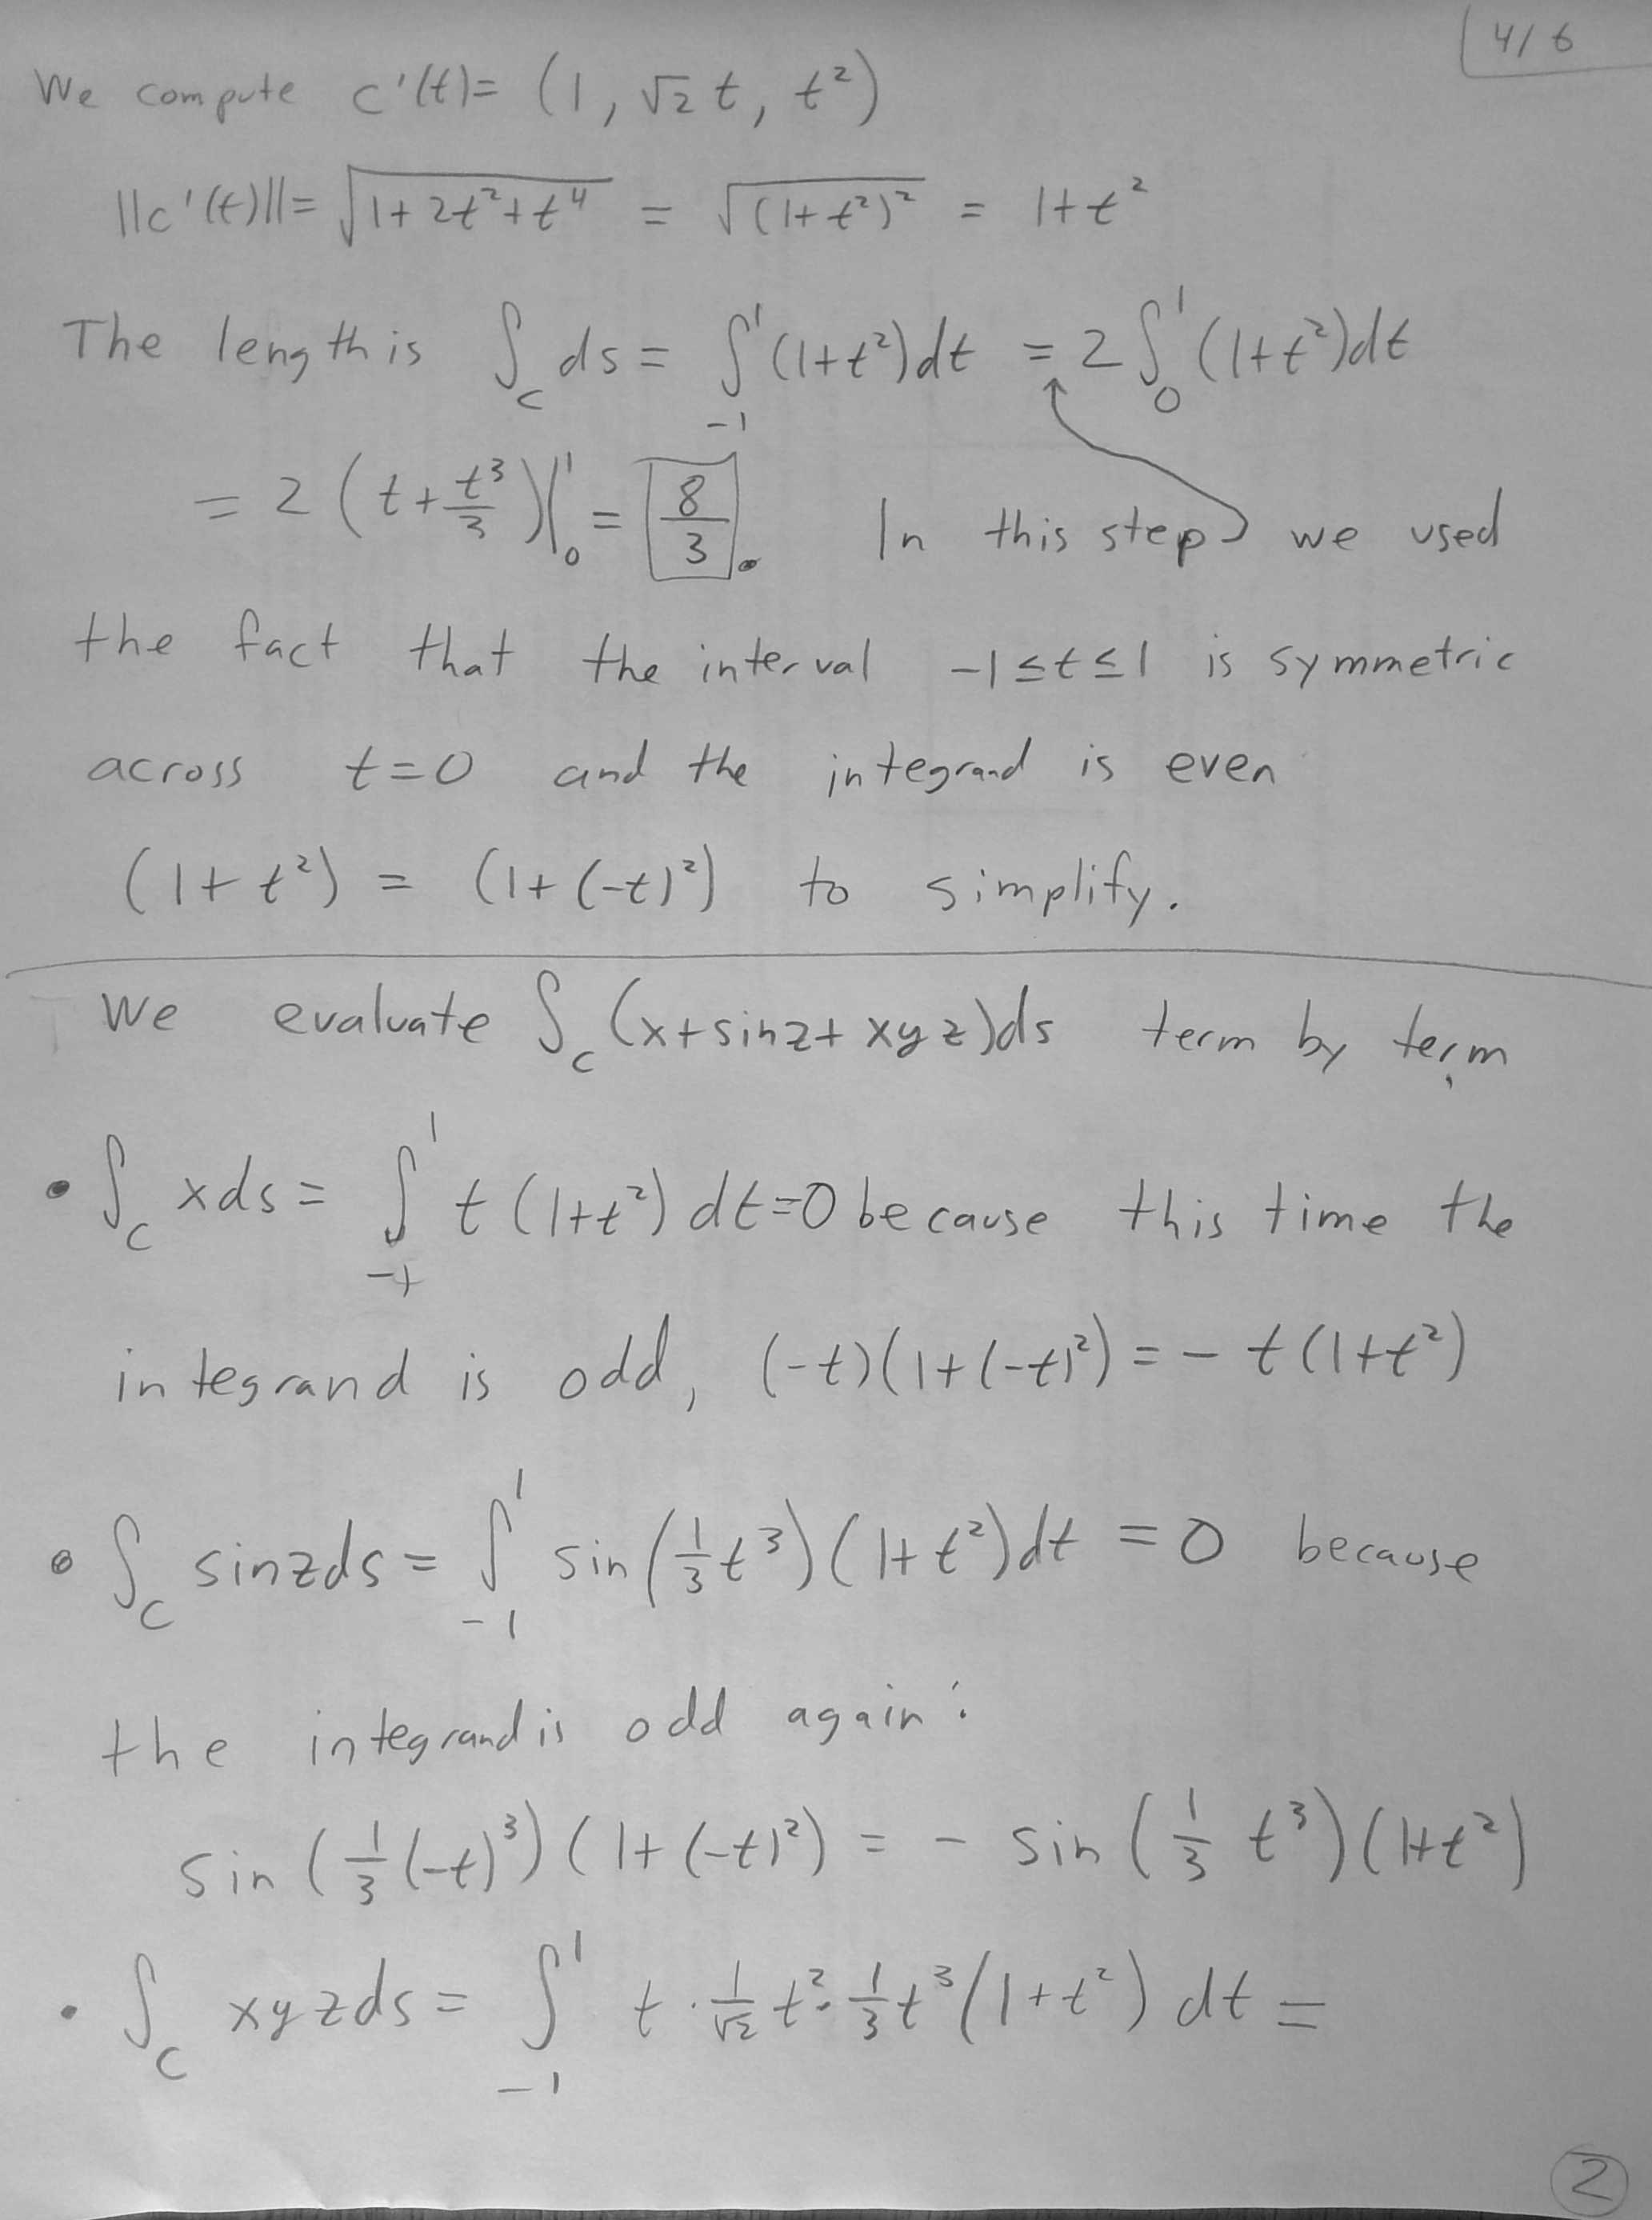 4/6
We compute c'(t)= (1, √2 t, t²)
||c'(t)||= √(1+2t²+t⁴) = √((1+t²)²) = 1+t²
The length is ∫_C ds = ∫_{-1}^1 (1+t²)dt = 2∫_0^1 (1+t²)dt
= 2 (t+t³/3)|_0^1 = 8/3. In this step we used
the fact that the interval -1≤t≤1 is symmetric
across t=0 and the integrand is even
(1+t²) = (1+(-t)²) to simplify.
We evaluate ∫_C (x+sinz+xyz)ds term by term
• ∫_C xds = ∫_{-1}^1 t(1+t²) dt=0 because this time the
integrand is odd, (-t)(1+(-t)²) = -t(1+t²)
• ∫_C sinzds = ∫_{-1}^1 sin(1/3 t³)(1+t²)dt = 0 because
the integrand is odd again:
sin(1/3 (-t)³)(1+(-t)²) = - sin(1/3 t³)(1+t²)
• ∫_C xyzds = ∫_{-1}^1 t·1/√2 t²·1/3 t³(1+t²) dt =
2